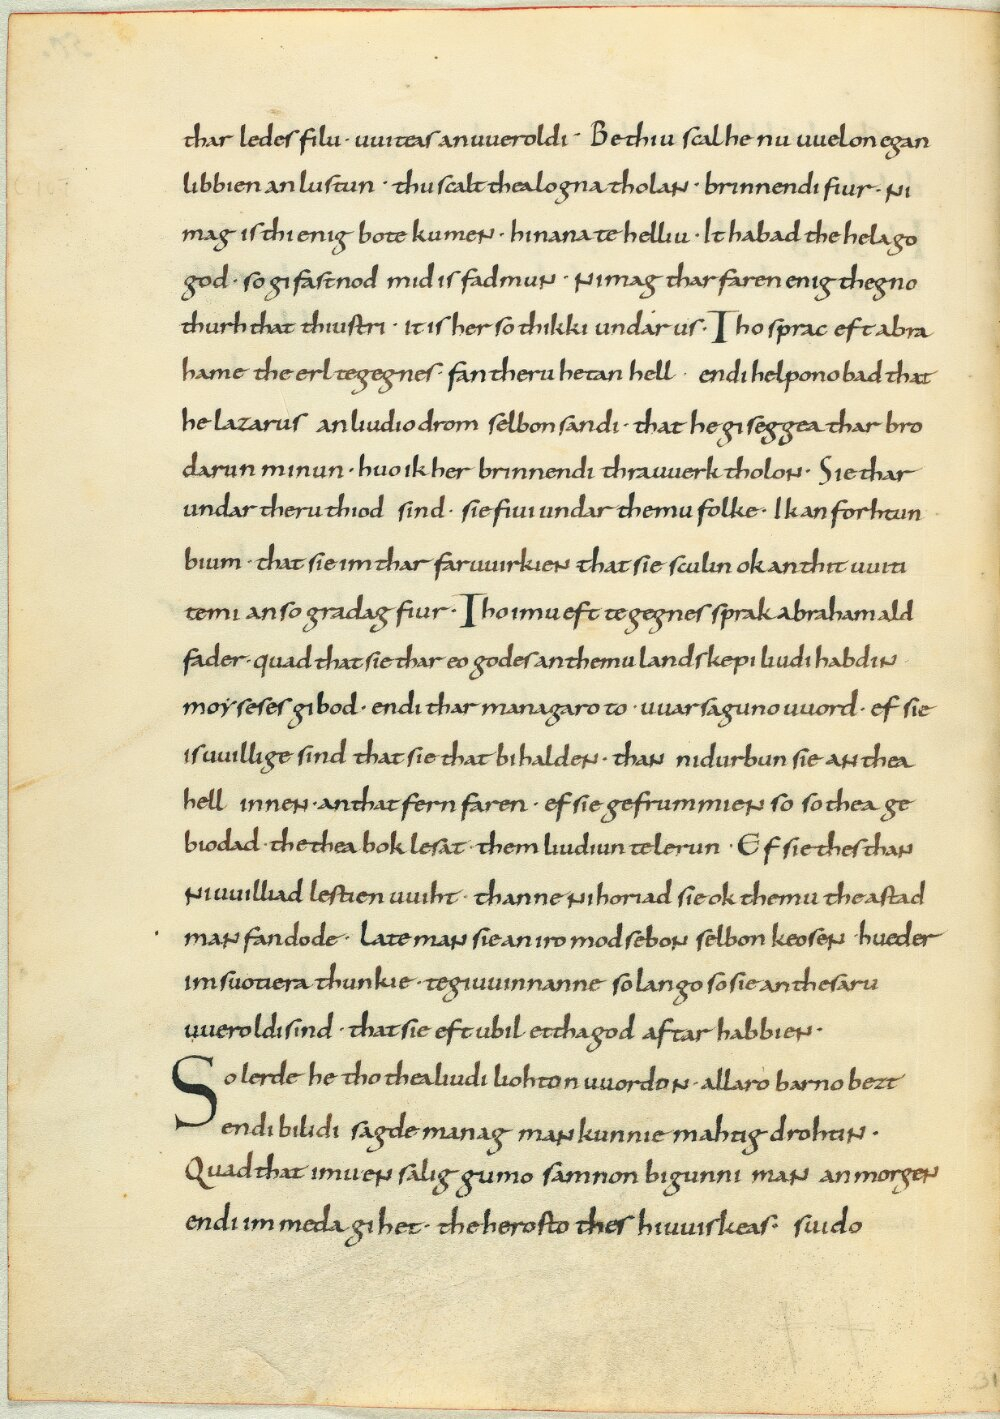 thar ledes filu · uuiteas an uueroldi · Bethiu scal he nu uuelon egan
libbien an lustun · thu scalt thea logna tholan · brinnendi fiur · ni
mag is thi enig bote kumen · hinana te helliu · It habad the helago
god · so gi fastnod mid is fadmun · ni mag thar faren enig thegno
thurh that thiustri · it is her so thikki undar us · Tho sprac eft abra
hame the erl tegegnes · fan theru hetan hell · endi helpono bad that
he lazarus an liudio drom selbon sandi · that he gi seggea thar bro
darun minun · huo ik her brinnendi thrauuerk tholon · Sie thar
undar theru thiod sind · sie fiui undar themu folke · Ik an forhtun
bium · that sie im thar faruuirkien that sie sculin ok an thit uuiti
te mi an so gradag fiur · Tho imu eft tegegnes sprak abraham ald
fader · quad that sie thar eo godes an themu landskepi liudi habdin
moyseses gibod · endi thar managaro to · uuarsaguno uuord · ef sie
is uuillige sind that sie that bihalden · than ni durbun sie an thea
hell innen · an that fern faren · ef sie gefrummien so so thea ge
biodad · the thea bok lesat · them liudiun te lerun · Ef sie thes than
ni uuilliad lestien uuiht · thanne ni horiad sie ok themu the astad
man fan dode · Late man sie an iro mod sebon selbon keosen · hueder
im suotiera thunkie · te giuuinnanne so lango so sie an thesaru
uueroldi sind · that sie eft ubil ettha god aftar habbien ·
So lerde he tho thea liudi liohton uuordon · allaro barno bezt
endi bilidi sagde manag mankunnie mahtig drohtin ·
Quad that imu en salig gumo samnon bigunni man an morgen
endi im meda gi het · the herosto thes hiuuiskeas · suido